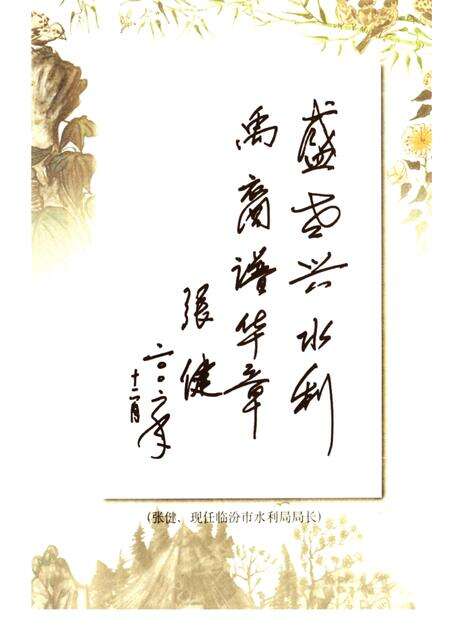 盛世兴水利
禹裔谱华章
张健
二〇〇六年
十二月
(张健,现任临汾市水利局局长)